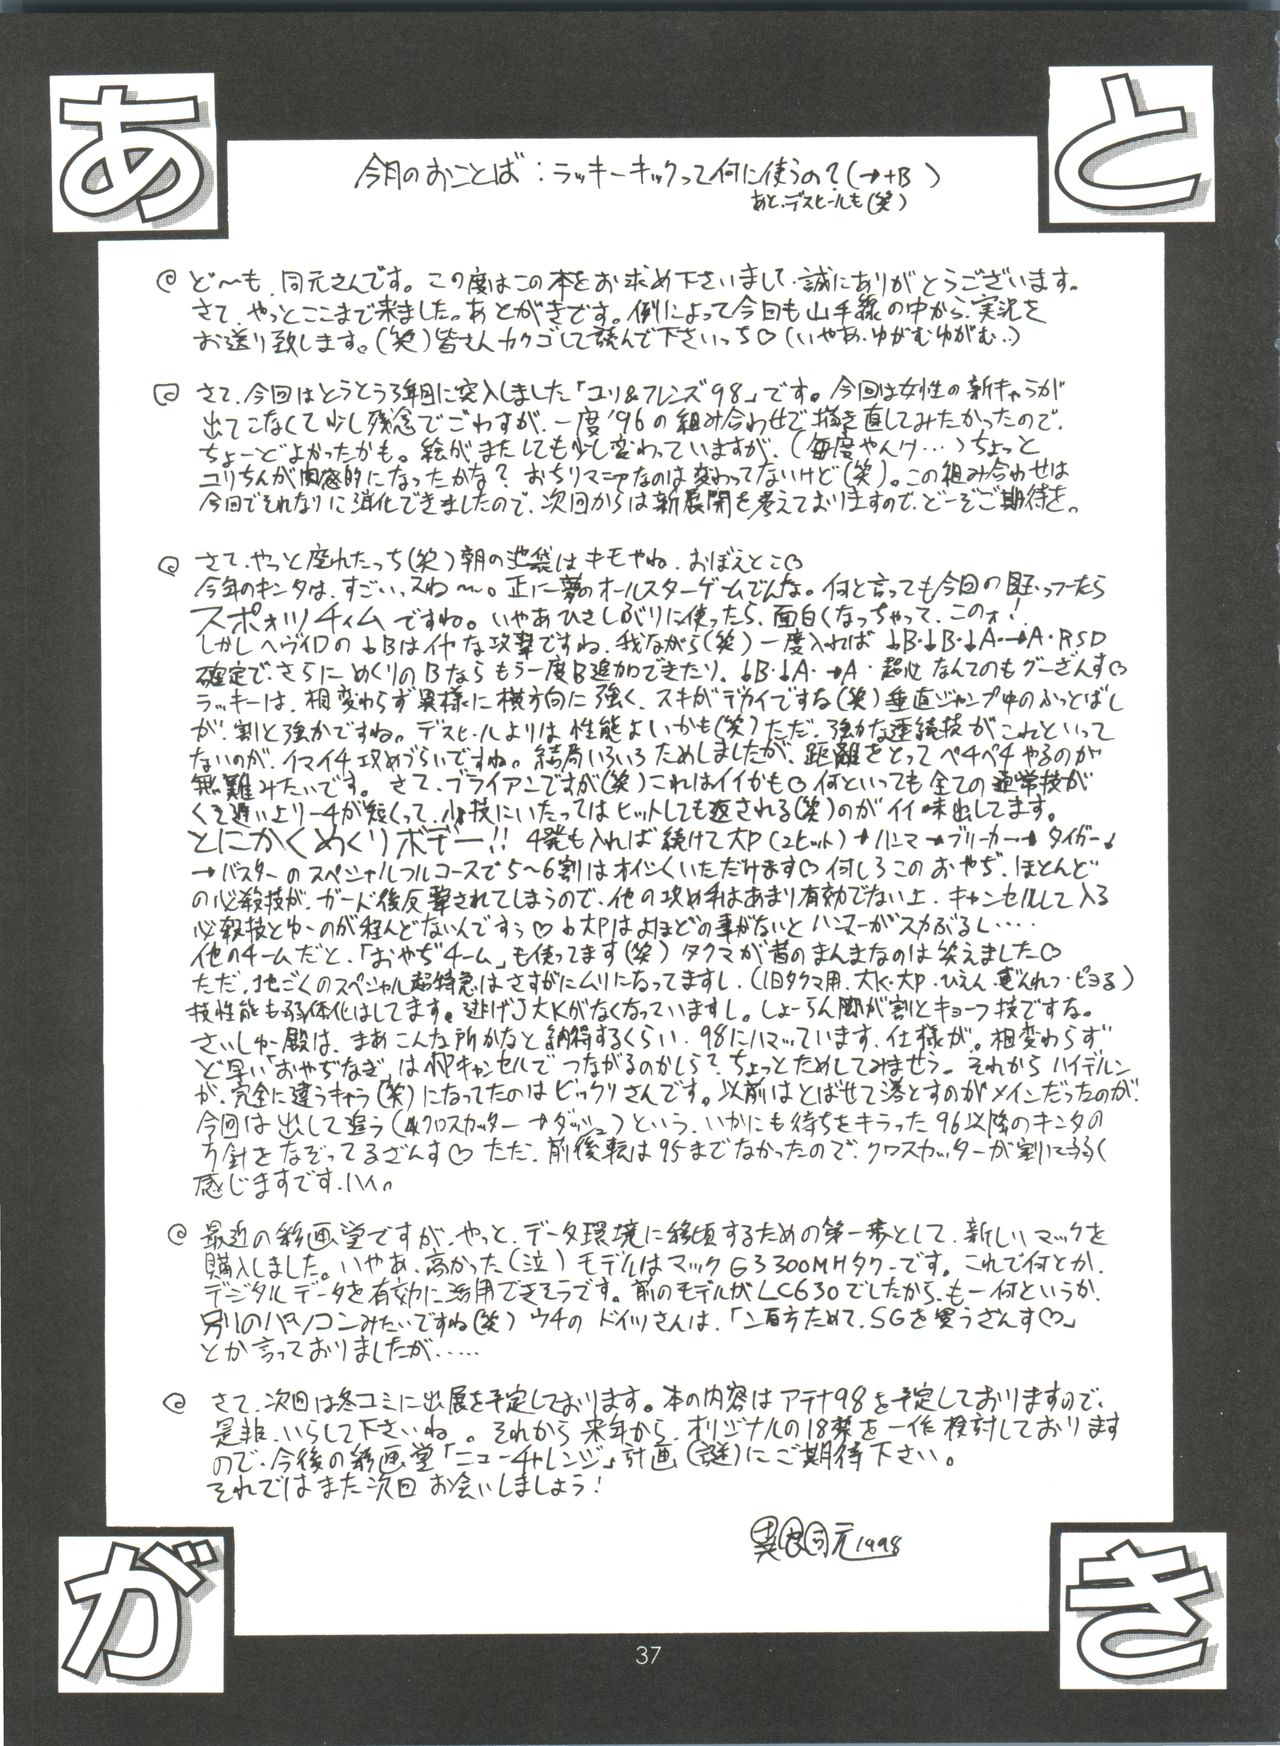 あとがき
今月のおことば：ラッキーキックって何に使うの？(→+B)
あと、デスヒールも(笑)
ど〜も、同元さんです。この度はこの本をお求め下さいまして、誠にありがとうございます。
さて、やっとここまで来ました。あとがきです。例によって今回も山手線の中から、実況を
お送り致します。(笑)皆さんカクゴして読んで下さいっち♡(いやあ、ゆがむゆがむ‥)
さて、今回はとうとう3年目に突入しました「ユリ&フレンズ98」です。今回は女性の新キャラが
出てこなくて少し残念でごわすが、一度'96の組み合わせで描き直してみたかったので、
ちょーどよかったかも。絵がまたしても少し変わっていますが、(毎度やんけ…)ちょっと
ユリちんが肉感的になったかな？おちりマニアなのは変わってないけど(笑)。この組み合わせは
今回でそれなりに消化できましたので、次回からは新展開を考えておりますので、どーぞご期待を。
さて、やっと座れたっち(笑)朝の池袋はキモやね、おぼえとこ♡
今年のキンタは、すごいっスね〜。正に夢のオールスターゲームでんな。何と言っても今回の目玉っつーたら
スポォツチィムですね。いやあひさしぶりに使ったら、面白くなっちゃって、このォ！
しかしヘヴィDの↓Bはイヤな攻撃ですね、我ながら(笑)一度入れば↓B・↓B・↓A・→A・RSD
確定で、さらにめくりのBならもう一度B追加できたり、↓B・↓A・→A・超必なんてのもグーざんす♡
ラッキーは、相変わらず異様に横方向に強く、スキがデカイですな(笑)垂直ジャンプ中のふっとばし
が、割と強かですね。デスヒールよりは性能よいかも(笑)ただ、強力な連続技がこれといって
ないのが、イマイチ攻めづらいですね。結局いろいろためしましたが、距離をとってペチペチやるのが
無難みたいです。さて、ブライアンですが(笑)これはイイかも♡何といっても全ての通常技が
くそ遅い上リーチが短くって、小技にいたってはヒットしても返される(笑)のがイイ味出してます。
とにかくめくりボデー!!4発も入れば続けて大P(2ヒット)→ハンマー→ブリーカー→タイガー↓
→バスターのスペシャルフルコースで5〜6割はオイシくいただけます♡何しろこのおやぢ、ほとんど
の必殺技が、ガード後反撃されてしまうので、他の攻め手はあまり有効でない上、キャンセルして入る
必殺技とゆーのが程んどないんですぅ♡大Pはよほどの事がないとハンマーがスカぶるし‥‥
他のチームだと、「おやぢチーム」も使ってます(笑)タクマが昔のまんまなのは笑えました♡
ただ、地ごくのスペシャル超特急はさすがにムリになってますし、(旧タクマ用、大K・大P・ひえん・ざんれつ・ピヨる)
技性能も弱体化はしてます。逃げJ大Kがなくなっていますし。しょーらん脚が割とキョーフ技ですな。
さいしゅー殿は、まあこんな所かなと納得するくらい、98にハマッています、仕様が。相変わらず
ど早い「おやぢなぎ」は、キャンセルでつながるのかしら？ちょっとためしてみませう。それからハイデルン
が、完全に違うキャラ(笑)になってたのはビックリさんです。以前はとばせて落とすのがメインだったのが、
今回は出して追う(クロスカッター→ダッシュ)という、いかにも待ちをキラった96以降のキンタの
方針をなぞってるざんす♡ただ、前後転は95までなかったので、クロスカッターが割に弱く
感じますです、ハイ。
最近の彩画堂ですが、やっと、データ環境に移項するための第一歩として、新しいマックを
購入しました。いやあ、高かった(泣)モデルはマックG3 300MHタワーです。これで何とか、
デジタルデータを有効に活用できそうです。前のモデルがLC630でしたから、もー何というか、
別のパソコンみたいですね(笑)ウチのドイツさんは、「二百万ためて、SGを買うざんす♡」
とか言っておりましたが‥‥‥
さて、次回は冬コミに出展を予定しております。本の内容はアテナ98を予定しておりますので、
是非、いらして下さいね。それから来年から、オリジナルの18禁を一作検討しております
ので、今後の彩画堂「ニューチャレンジ」計画(謎)にご期待下さい。
それではまた次回お会いしましょう！
同元1998
37